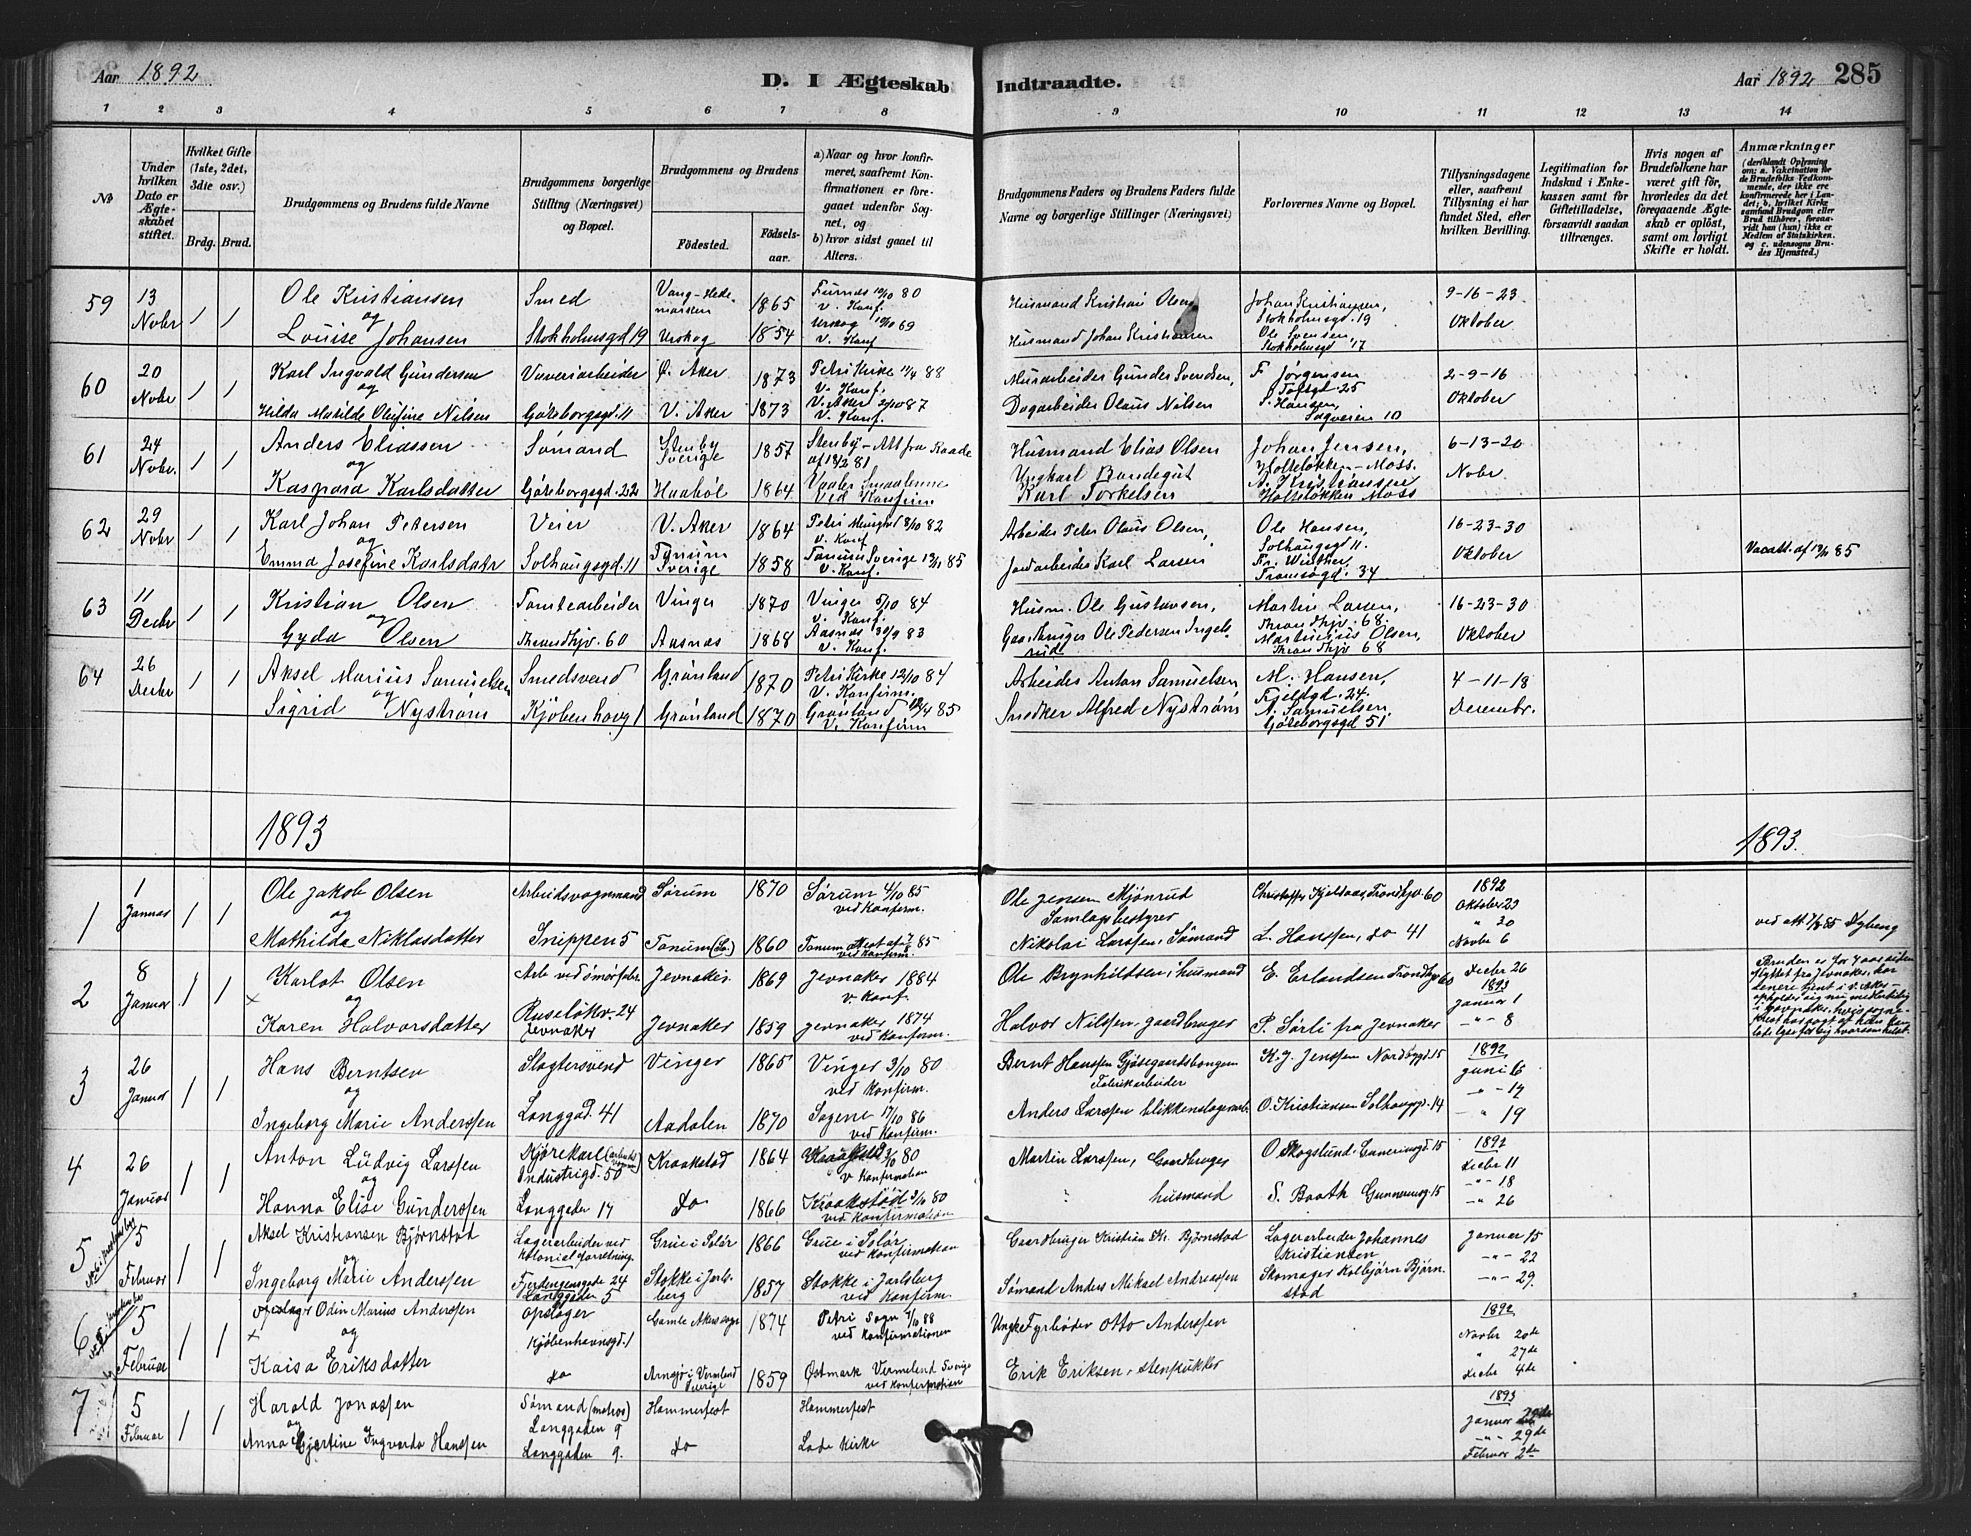 Aar 1892
D. I Ægteskab Indtraadte.
Aar 1892 285
1 2 3 4 5 6 7 8 9 10 11 12 13 14
№
Under hvilken Dato er Ægteskabet stiftet.
Hvilket Gifte (1ste, 2det, 3die osv.)
Brdg. Brud.
Brudgommens og Brudens fulde Navne
Brudgommens borgerlige Stilling (Næringsvei) og Bopæl.
Brudgommens og Brudens
Fødested. Fødselsaar.
a) Naar og hvor konfirmeret, saafremt Konfirmationen er foregaaet udenfor Sognet, og
b) hvor sidst gaaet til Alters.
Brudgommens Faders og Brudens Faders fulde Navne og borgerlige Stillinger (Næringsvei)
Forlovernes Navne og Bopæl.
Tillysningsdagene eller, saafremt Tillysning ei har fundet Sted, efter hvilken Bevilling.
Legitimation for Indskud i Enkekassen samt for Giftetilladelse, forsaavidt saadan tiltrænges.
Hvis nogen af Brudefolkene har været gift før, hvorledes da det foregaaende Ægteskab er opløst, samt om lovligt Skifte er holdt.
Anmærkninger
(deriblandt Oplysning om: a. Vakcination for de Brudefolks Vedkommende, der ikke ere konfirmerede her i Landet; b. hvilket Kirkesamfund Brudgom eller Brud tilhører, forsaavidt han (hun) ikke er Medlem af Statskirken. og c. udensogns Brudes Hjemsted.)
59 13 Novbr 1 1 Ole Kristiansen Smed Vang-Hedemarken 1865 Furnes 10/10 80 v. Konf. Husmand Kristian Olsen Johan Kristiansen, Stokholmsgd. 19 9-16-23
og
Louise Johansen Stokholmsgd 19 Urskog 1854 Urskog 10/10 69 v. Konf Husmand Johan Kristiansen Ole Svensen, Stokholmsgd 17 Oktober
60 20 Novbr 1 1 Karl Ingvald Gundersen Væveriarbeider Ø. Aker 1873 Petri Kirke 88 V. Konf. Murarbeider Gunder Svendsen, F. Jørgensen Toftsgd. 25 2-9-16
og
Hilda Matilde Olufine Nilsen Gøteborgsgd. 11 V. Aker 1873 V. Aker 87 V. Konf. Dagarbeider Olaus Nilsen S. Hansen, Sagveien 10 Oktober
61 24 Novbr. 1 1 Anders Eliassen Sømand Stenby Sverige 1857 Stenby - Att fra Raade af 81 Husmand Elias Olsen Johan Jensen, Holteløkken - Moss. 6-13-20
og
Kaspara Karlsdatter Gøteborgsgd. 22 Haabøl 1864 Vaaler Smaalenene Ved Konfirm Ungkarl Bondegut Karl Torkelsen A. Kristiansen Holteløkken Moss Novbr
62 29 Novbr 1 1 Karl Johan Petersen Veier V. Aker 1864 Petri Menighed 8/10 82 v. Konf Arbeider Peter Olaus Olsen, Ole Hansen, Solhaugsgd 11. 16-23-30
og
Emma Josefine Karlsdatr Solhaugsgd. 11 Tanum Sverige 1858 Tanum Sverige 85 V. Konf. Jordarbeider Karl Larsen Fr. Winther Tromsøgd. 34 Oktober Vacatt. af 85
63 11 Decbr 1 1 Kristian Olsen Tomtearbeider Vinger 1870 Vinger 5/10 84 v. Konf. Husm. Ole Gustavsen, Martin Larsen, Throndhjv. 68. 16-23-30
og
Gyda Olsen Throndhjv. 60 Aasnes 1868 Aasnæs 30/9 83 v. Konf. Gaardbruger Ole Pedersen Ingelsrud Martinius Olsen, Throndhjv 68 Oktober
64 26 Decbr 1 1 Aksel Marius Samuelsen Smedsvend Grønland 1870 Petri Kirke 12/10 84 V. Konfirm. Arbeider Anton Samuelsen M. Hansen, Fjeldgd. 24. 4-11-18
og
Sigrid Nystrøm Kjøbenhavg 1 Grønland 1870 Grønland 12/4 85 V. Konfirm Snedker Alfred Nystrøm A. Samuelsen, Gøteborgsgd 51 Decembr.
1893 1893.
1 1 Januar 1 1 Ole Jakob Olsen Arbeidsvognmand Sørum 1870 Sørum 4/10 85 ved Konfirm. Ole Jensen Mjønrud Samlagsbestyrer Christoffer Kjelsaas, Trondhjv. 60 1892 Oktober 23 " 30
og
Mathilda Niklasdatter Snippen 5 Tanum (Sv.) 1860 Tanum Attest af 85 ved Konfirm. Nikolai Larssen, Sømand L. Hanssen, do 41 Novbr 6 ved att 7/8 85 Dybeng
2 8 Januar 1 1 Karlot Olsen Arb ved smørfabr. Jevnaker 1869 Jevnaker 1884 v. Konf. Ole Brynhildsen, husmand E. Erlandsen Trondhjv 60 Decbr 26
og
Karen Halvorsdatter Ruseløkv. 24 Jevnaker Jevnaker 1859 Jevnaker 1874 ved Konfirm. Halvor Nilssen, gaardbruger P. Sørli fra Jevnaker 1893 Januar 1 -"- 8
Bruden er for 7 aar siden flyttet fra Jevnaker, har senere tjent i V. Aker - opholder sig nu midlertidig i Jevnaker, hvis sogneprest har sagt at han kan
3 26 Januar 1 1 Hans Berntsen Slagtersvend Vinger 1865 Vinger 3/10 80 ved Konfirm. Bernt Hanssen Gjøsegaardsbongen Fabrikarbeider K. J. Jenssen Nordbygd. 15 1892 Juni 5
og
Ingeborg Marie Anderssen Langgad. 41 Aadalen 1870 Sagene 17/10 86 ved Konfirm. Anders Larssen blikkenslagerarb. O. Kristiansen Solhaugsgd. 14 -"- 19
4 26 Januar 1 1 Anton Ludvig Larssen Kjørekarl Industrigd. 50 Kraakstad 1864 Kraakstad 3/10 80 v Konfirmation Martin Larssen, Gaardbruger O. Skogslund 1892 Decbr 11 -"- 18
og
Hanna Elise Gunderssen Langgaden 17 do 1866 Kraakstad 3/10 80 ved Konfirmation husmand S. Baath 15 -"- 26
5 5 Februar 1 1 Aksel Kristiansen Bjørnstad Lagerarbeider ved Kolonial forretning. Grue i Solør 1866 Grue i Solør ved Konfirmation Gaardbruger Kristian Kr. Bjørnstad Lagerarbeider Johannes Kristiansen Januar 15 -"- 22
og
Ingeborg Marie Anderssen Fjerdingensgade 24 Langgaden 5 Stokke i Jarlsberg 1857 Stokke i Jarlsberg ved Konfirm. Sømand Anders Mikael Andreassen Skomager Kolbjørn Bjørnstad -"- 29.
6 5 Februar 1 1 Odin Marius Anderssen opslager Kjøbenhavnsgd. 1 Gamle Akers sogn 1874 Petri Sogn 88 ved Konfirmationen Fyrbøder Otto Anderssen 1892 Novbr 20de
og
Kaisa Eriksdatter do Vermland Sverige 1859 Østmark Vermeland Sverige ved Konfirmation Erik Eriksen, stenhukker " 27de Decbr 4de
7 5 Februar 1 1 Harald Jonassen Sømand (matros) Langgaden 9 Hammerfest Hammerfest 1893 Januar
og
Anna Gjertine Ingvarda Hanssen Langgaden 9. do Lade Kirke -"- 29de Februar 2de